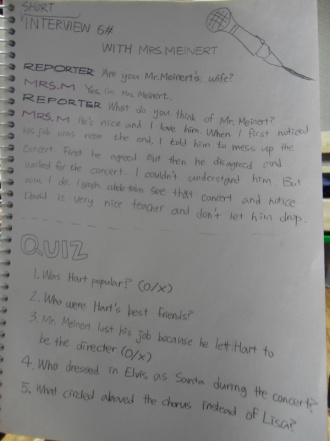 SHORT
INTERVIEW 6#
WITH MRS.MEINERT
REPORTER Are you Mr.Meinert's wife?
MRS.M Yes, I'm Mrs. Meinert.
REPORTER What do you think of Mr. Meinert?
MRS.M He's nice and I love him. When I first noticed
his job was near the end, I told him to mess up the
concert. First he agreed but then he disagreed and
worked for the concert. I couldn't understand him. But
now I do. see that concert and notice
David is very nice teacher and don't let him drop.
QUIZ
1. Was Hart popular? (O/X)
2. Who were Hart's best friends?
3. Mr. Meinert lost his job because he left Hart to
be the director (O/X)
4. Who dressed in Elvis as Santa during the concert?
5. What circled aboved the chorus instead of Lisa?